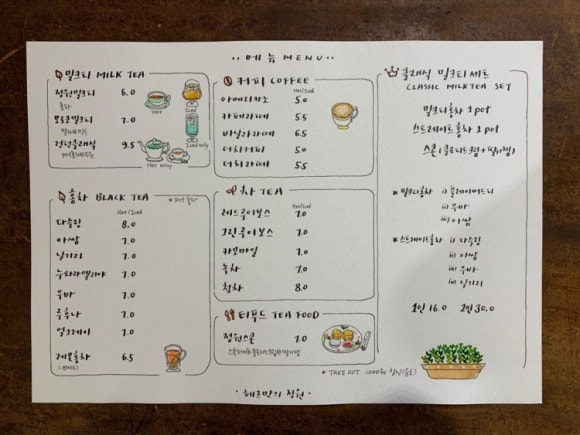 ·· 메뉴 MENU ··
밀크티 MILK TEA
정원밀크티 6.0
홍차
모로코밀크티 7.0
Hot
Iced
9.5
Hot only
Iced only
홍차 BLACK TEA
* Pot 홍차
Hot/Iced
다즐링 8.0
아쌈 7.0
딤불라 7.0
누와라엘리야 7.0
우바 7.0
루후나 7.0
얼그레이 7.0
레몬홍차 6.5
커피 COFFEE
Hot/Iced
아메리카노 5.0
카페라떼 5.5
바닐라라떼 6.5
더치커피 5.0
더치라떼 5.5
차 TEA
Hot/Iced
레드루이보스 7.0
그린루이보스 7.0
카모마일 7.0
녹차 7.0
철차 8.0
티푸드 TEA FOOD
정원스콘 7.0
클래식 밀크티 세트
CLASSIC MILKTEA SET
밀크티홍차 1 pot
스트레이트홍차 1 pot
스콘 (클로티드크림+딸기쨈)
* 밀크티홍차 i)
ii) 우바
iii) 아쌈
* 스트레이트홍차 i) 다즐링
ii) 아쌈
iii) 우바
iv) 딤불라
1인 16.0 2인 30.0
* TAKE OUT 1000원 할인 (음료)
· 헤르만의 정원 ·